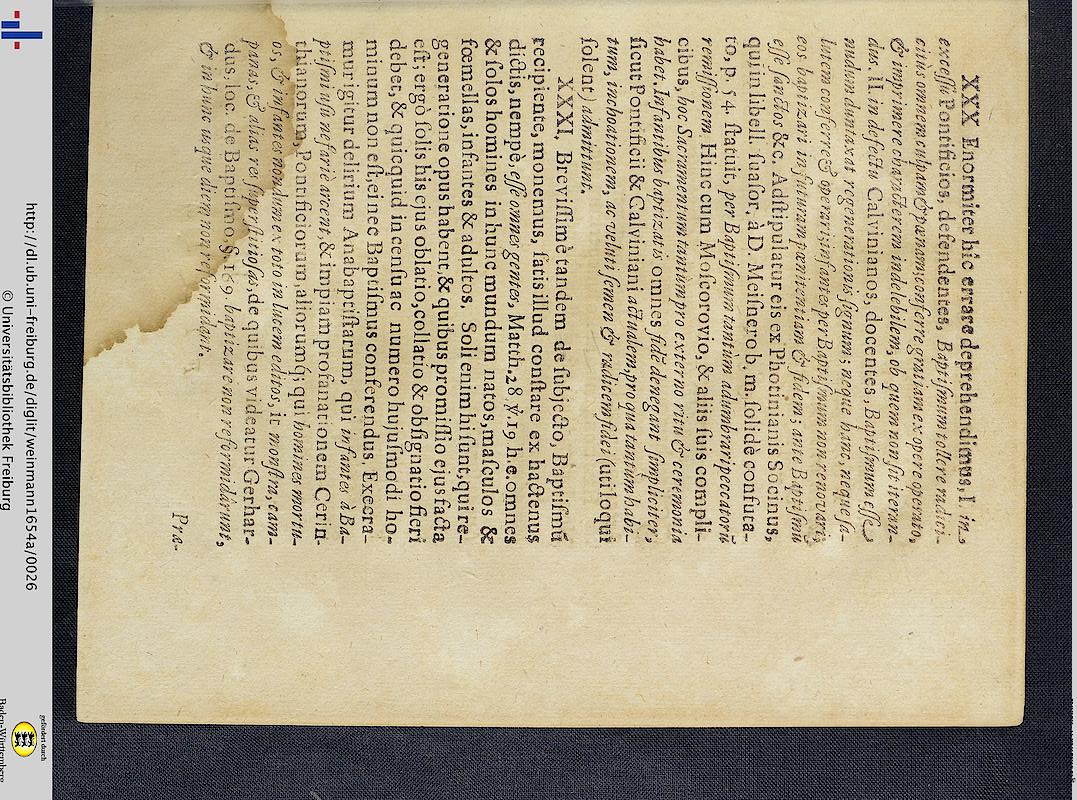 XXX Enormiter hîc errare deprehendimus, I. in
excessu Pontificios, defendentes, Baptismum tollere radici-
citùs omnem culpam & pœnam, conferre gratiam ex opere operato,
& imprimere characterem indelebilem, ob quem non sit iteran-
dus. II in defectu Calvinianos, docentes Baptismum esse
nudum duntaxat regenerationis signum; neque hanc, neque sa-
lutem conferre & operari; infantes per Baptismum non renovari;
eos baptizari in futuram pœnitentiam & fidem; ante Baptismũ
esse sanctos &c. Adstipulatur eis ex Photinianis Socinus,
qui in libell. suasor, à D. Meisnero b. m. solidè confuta-
to, p. 54. statuit, per Baptismum tantùm adumbrari peccatorũ
remissionem, Hinc cum Moscorovio, & aliis suis compli-
cibus, hoc Sacramentum tantùm pro externo ritu & ceremonia
habet. Infantibus baptizatis omnes fidẽ denegant simpliciter,
sicut Pontificii & Calviniani actualem, pro qua tantùm habi-
tum, inchoationem, ac veluti semen & radicem fidei (uti loqui
solent) admittunt.
XXXI, Brevissimè tandem de subjecto, Baptismũ
recipiente, monemus, satis illud constare ex hactenus
dictis, nempè, esse omnes gentes, Matth. 28 ℣. 19 h.e. omnes
& solos homines in hunc mundum natos, masculos &
fœmellas, infantes & adultos. Soli enim hi sunt, qui re-
generatione opus habent, & quibus promissio ejus facta
est, ergò solis his ejus oblatio, collatio & obsignatio fieri
debet, & quicquid in censu ac numero hujusmodi ho-
minum non est, ei nec Baptismus conferendus. Execra-
mur igitur delirium Anabaptistarum, qui infantes à Ba-
ptismi usu nefariè arcent, & impiam profanationem Cerin-
thianorum, Pontificiorum, aliorumq́; qui homines mortu-
os, & infantes nondum ex toto in lucem editos, it monstra, cam-
panas, & alias res superstitiosas, de quibus videatur Gerhar-
dus, loc. de Baptismo §. 169. baptizare non reformidârunt,
& in hunc usque diem non reformidant.
Præ-
http://dl.ub.uni-freiburg.de/diglit/weinmann1654a/0026
© Universitätsbibliothek Freiburg
gefördert durch
Baden-Württemberg